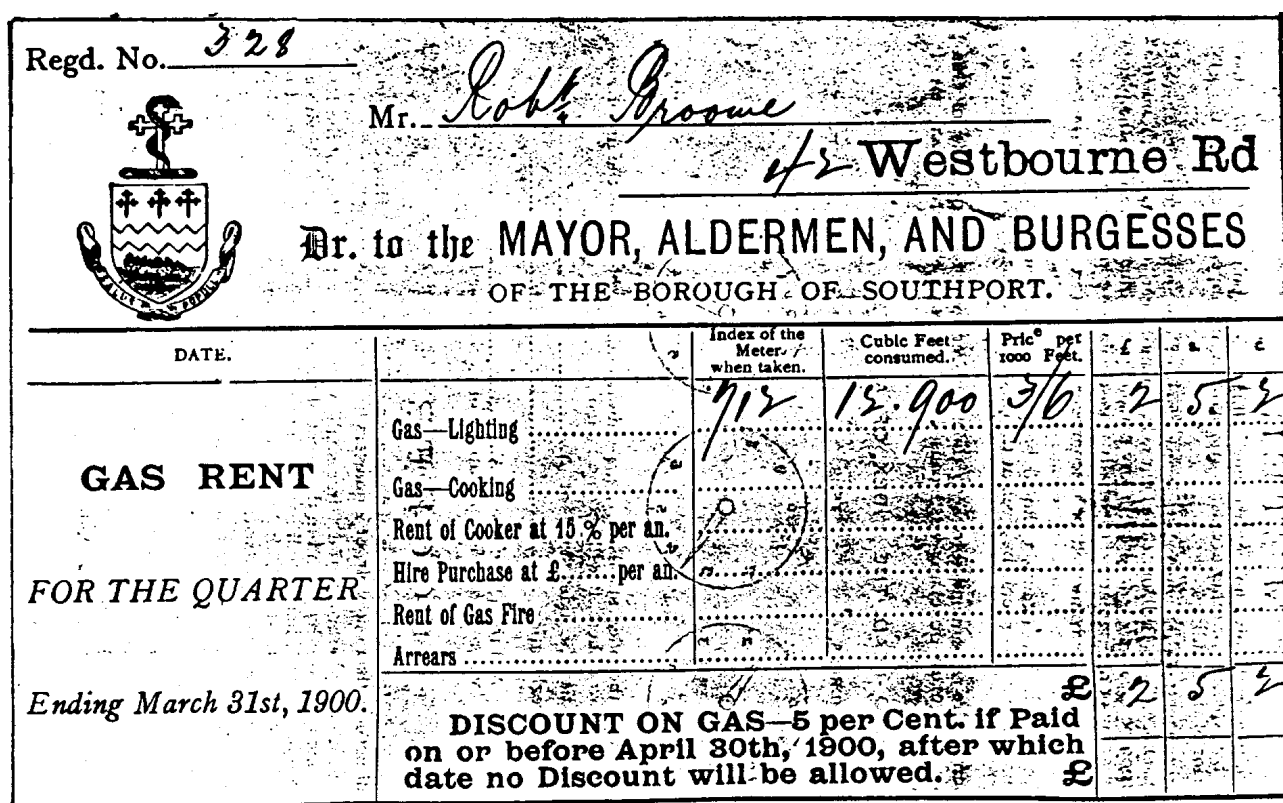 Regd. No. 328
Mr. Robt. Broome
42 Westbourne Rd
Dr. to the MAYOR, ALDERMEN, AND BURGESSES
OF THE BOROUGH OF SOUTHPORT.
SALUS POPULI
DATE. Index of the Meter when taken. Cubic Feet consumed. Price per 1000 Feet. £ s.
Gas—Lighting 712 12.900 3/6 2 5 2
GAS RENT
Gas—Cooking
Rent of Cooker at 15 % per an.
Hire Purchase at £ per an.
FOR THE QUARTER
Rent of Gas Fire
Arrears
Ending March 31st, 1900.
£ 2 5 2
DISCOUNT ON GAS—5 per Cent. if Paid
on or before April 30th, 1900, after which
date no Discount will be allowed. £